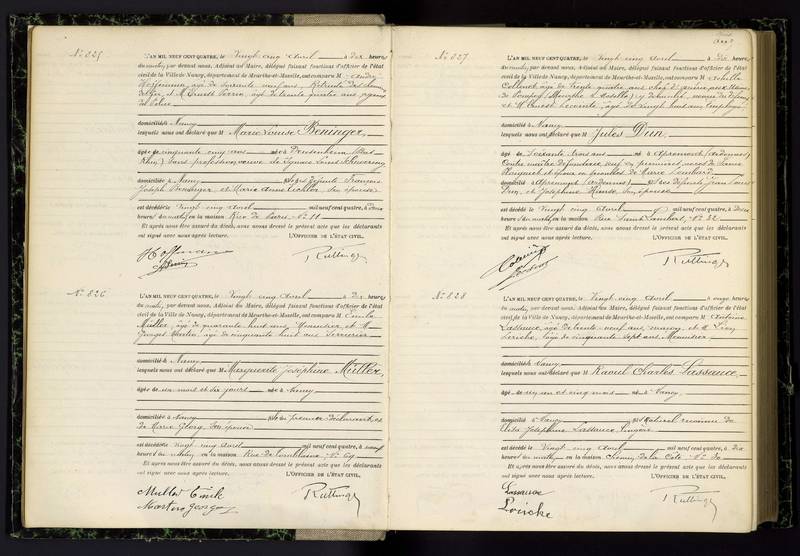 N° 825
L'AN MIL NEUF CENT QUATRE, le Vingt cinq Avril à dix heures
du matin, par devant nous, Adjoint au Maire, délégué faisant fonctions d'officier de l'état
civil de la Ville de Nancy, département de Meurthe-et-Moselle, ont comparu M André
Hoffmann, âgé de soixante neuf ans, Retraité des
et M Ernest Perrin, âgé de trente quatre ans agent
de Police
domiciliés à Nancy
lesquels nous ont déclaré que M Marie Louise Beninger,
âgée de cinquante cinq ans née à Drusenheim (Bas
Rhin) Sans profession, veuve de Ignace Louis
domiciliée à Nancy fille des défunts François
Joseph Beninger, et Marie Anne son épouse
est décédée le Vingt cinq Avril mil neuf cent quatre, à
heures du matin en la maison Rue de N° 11
Et après nous être assuré du décès, nous avons dressé le présent acte que les déclarants
ont signé avec nous après lecture. L'OFFICIER DE L'ÉTAT CIVIL,
Hoffmann Ruttinger
N° 826
L'AN MIL NEUF CENT QUATRE, le Vingt cinq Avril à dix heures
du matin, par devant nous, Adjoint au Maire, délégué faisant fonctions d'officier de l'état
civil de la Ville de Nancy, département de Meurthe-et-Moselle, ont comparu M Emile
Müller, âgé de quarante huit ans, Menuisier, et M
Georges Martin, âgé de cinquante huit ans Serrurier
domiciliés à Nancy
lesquels nous ont déclaré que M Marguerite Joséphine Müller,
âgée de un mois et dix jours née à Nancy
domiciliée à Nancy fille du premier déclarant, et
de Marie Georg, son épouse
est décédée le Vingt cinq Avril mil neuf cent quatre, à
heures du matin en la maison Rue de N° 69
Et après nous être assuré du décès, nous avons dressé le présent acte que les déclarants
ont signé avec nous après lecture. L'OFFICIER DE L'ÉTAT CIVIL,
Muller Emile Ruttinger
Martin georges
N° 827
L'AN MIL NEUF CENT QUATRE, le Vingt cinq Avril à dix heures
du matin, par devant nous, Adjoint au Maire, délégué faisant fonctions d'officier de l'état
civil de la Ville de Nancy, département de Meurthe-et-Moselle, ont comparu M Achille
Collinet, âgé de trente quatre ans,
de Pompey (Meurthe et Moselle)
et M Ernest Lecomte, âgé de vingt huit ans employé
domiciliés à Nancy
lesquels nous ont déclaré que M Jules Dun,
âgé de Soixante trois ans né à Apremont (Ardennes)
veuf en premières noces de
et époux en secondes de Marie
domicilié à Apremont (Ardennes) fils des défunts Jean Louis
Dun, et Joséphine son épouse
est décédé le Vingt cinq Avril mil neuf cent quatre, à
heures du matin en la maison Rue Saint Lambert, N° 32
Et après nous être assuré du décès, nous avons dressé le présent acte que les déclarants
ont signé avec nous après lecture. L'OFFICIER DE L'ÉTAT CIVIL,
Ruttinger
N° 828
L'AN MIL NEUF CENT QUATRE, le Vingt cinq Avril à onze heures
du matin, par devant nous, Adjoint au Maire, délégué faisant fonctions d'officier de l'état
civil de la Ville de Nancy, département de Meurthe-et-Moselle, ont comparu M Antoine
Lassauce, âgé de trente neuf ans, maçon, et M Léon
Leriche, âgé de cinquante sept ans Menuisier
domiciliés à Nancy
lesquels nous ont déclaré que M Raoul Charles Lassauce
âgé de un an et cinq mois né à Nancy,
domicilié à Nancy fils Naturel reconnu de
Joséphine Lassauce, Lingère
est décédé le Vingt cinq Avril mil neuf cent quatre, à dix
heures du matin, en la maison Chemin de la Côte, N° 30
Et après nous être assuré du décès, nous avons dressé le présent acte que les déclarants
ont signé avec nous après lecture. L'OFFICIER DE L'ÉTAT CIVIL,
Lassauce Ruttinger